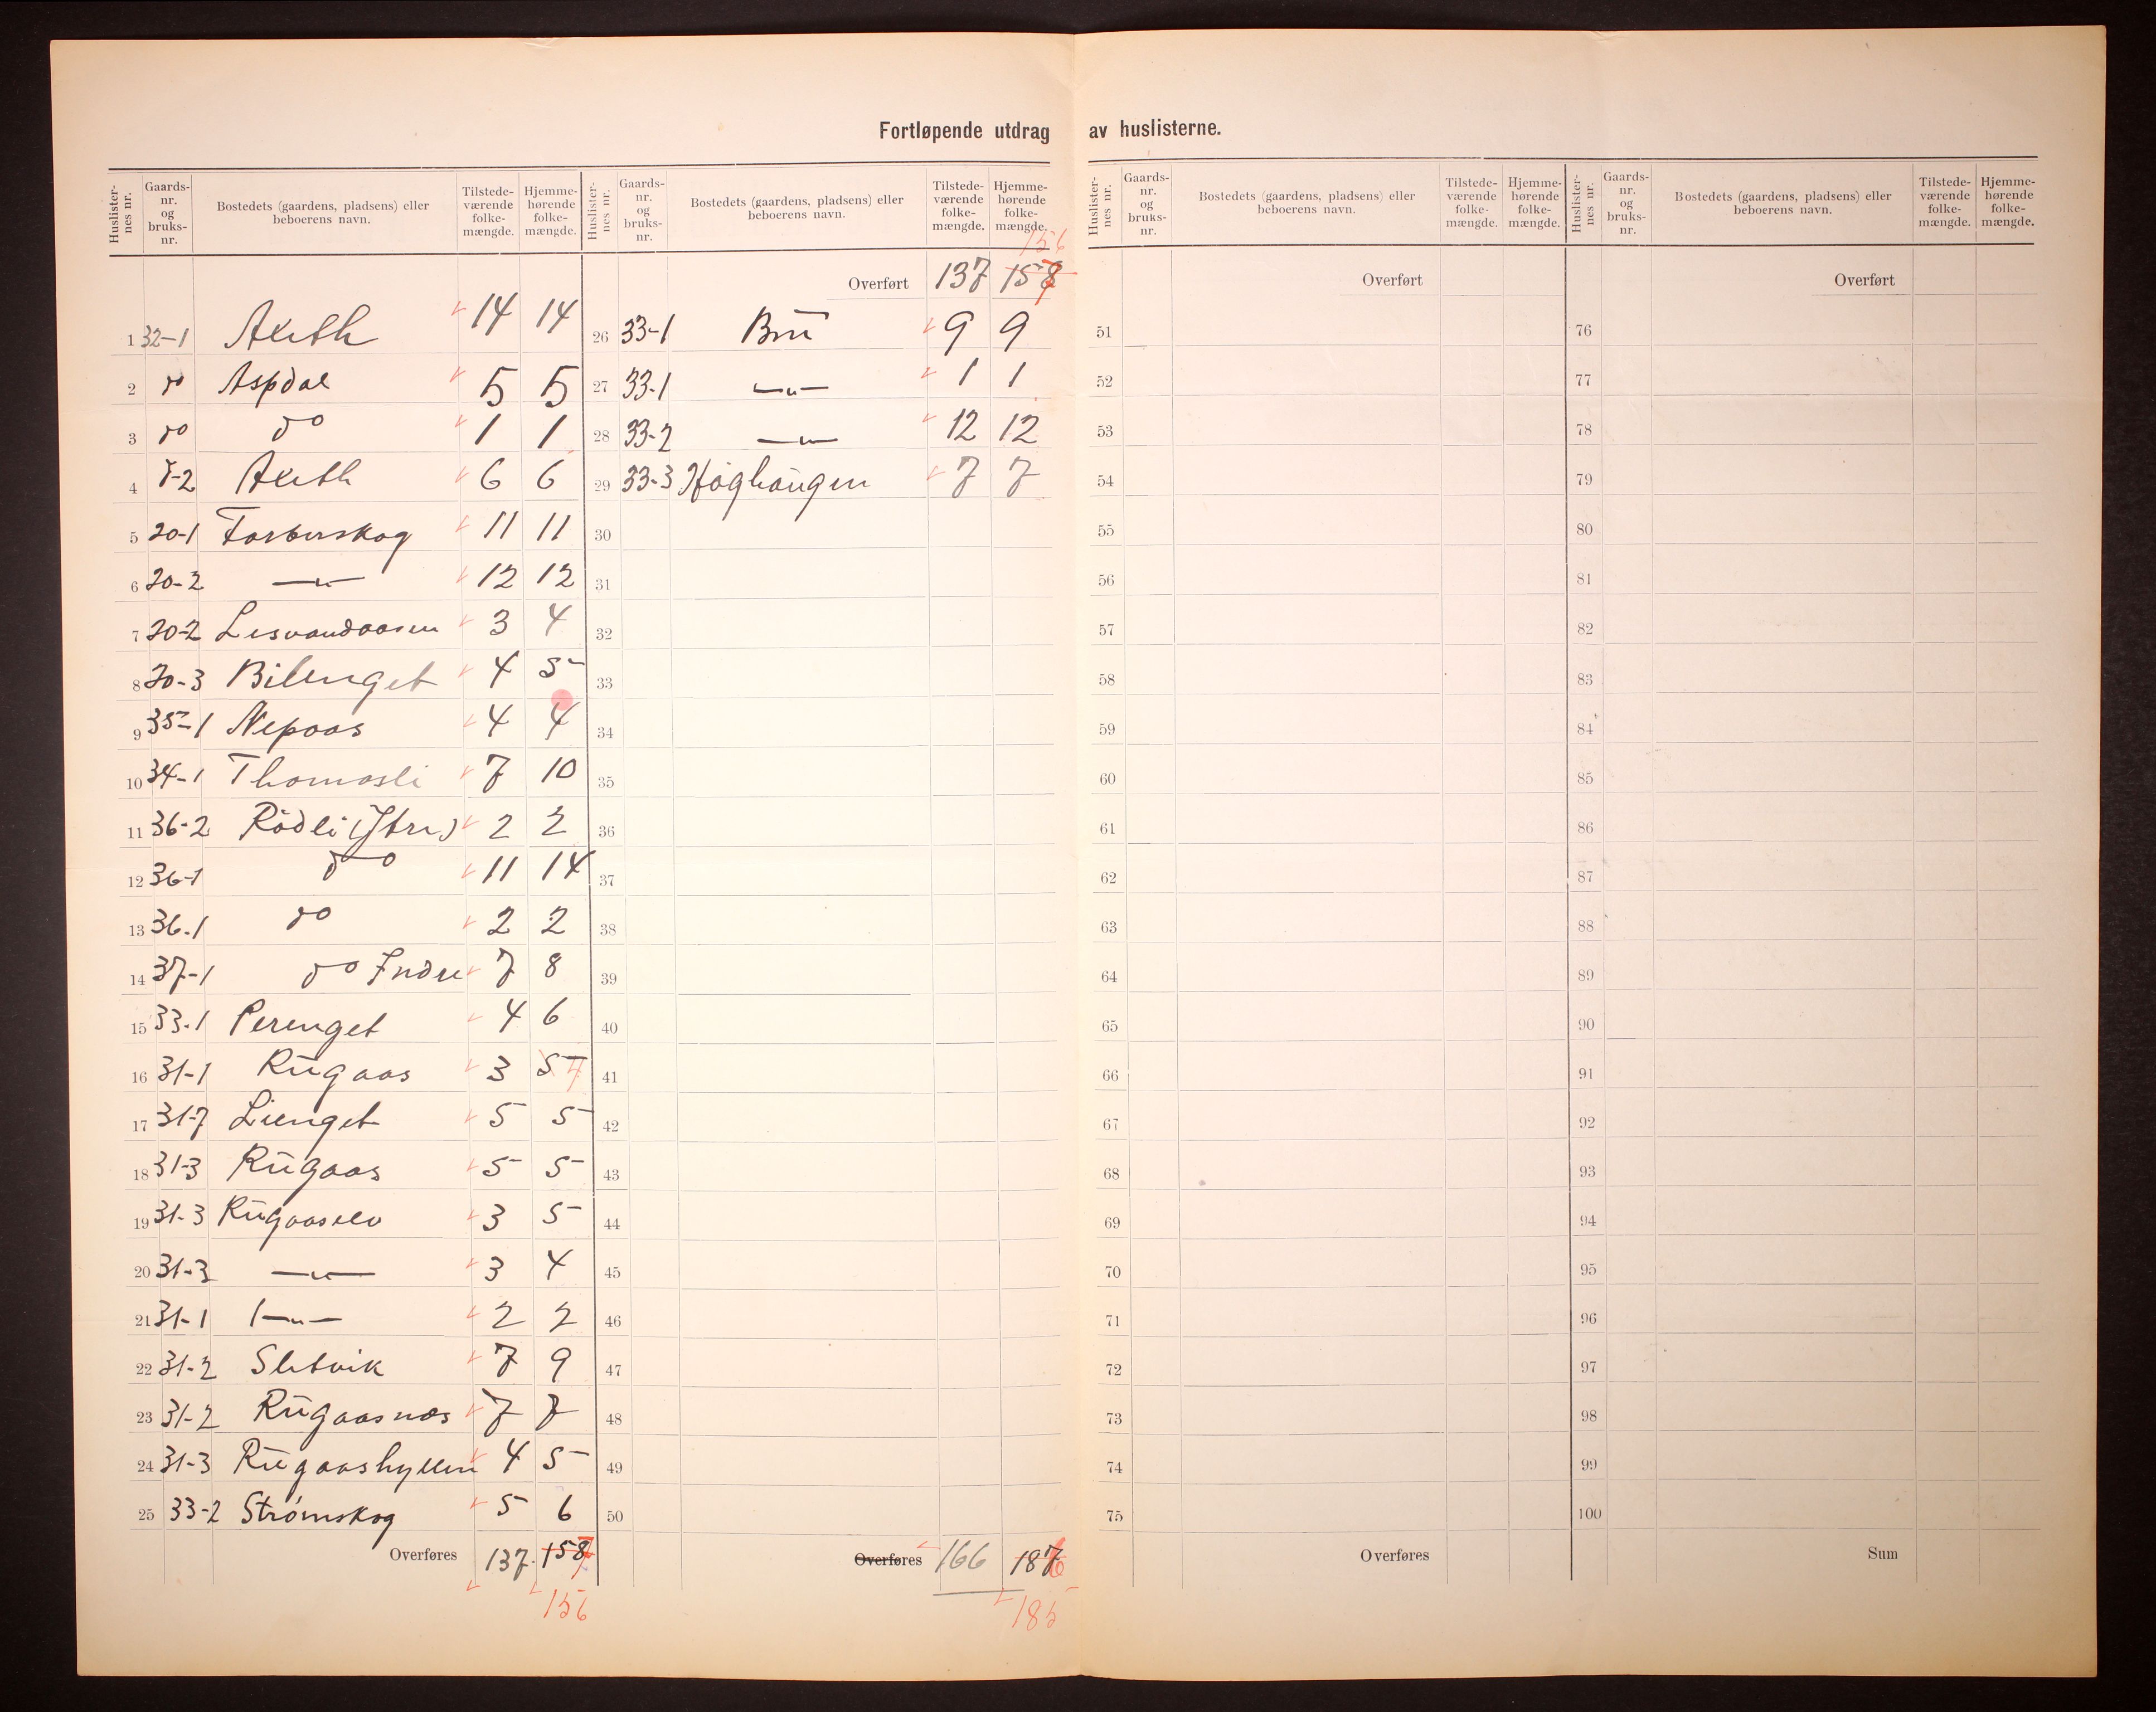 Fortløpende utdrag av huslisterne.
Huslister-nes nr. Gaards-nr. og bruks-nr. Bostedets (gaardens, pladsens) eller beboerens navn. Tilstede-værende folke-mængde. Hjemme-hørende folke-mængde.
1 32-1 14 14
2 do Aspdal 5 5
3 do do 1 1
4 6 6
5 20-1 11 11
6 20-2 —"— 12 12
7 20-2 3 4
8 20-3 Bilenget 4 5
9 35-1 Nepaas 4 4
10 34-1 Thomasli 7 10
11 36-2 Rödli (Ytre) 2 2
12 36-1 do 11 14
13 36-1 do 2 2
14 37-1 do Indre 7 8
15 33-1 Perenget 4 6
16 31-1 Rugaas 3 5 4
17 31-7 Lienget 5 5
18 31-3 Rugaas 5 5
19 31-3 Rugaaselv 3 5
20 31-3 —"— 3 4
21 31-1 —"— 2 2
22 31-2 Sletvik 7 9
23 31-2 Rugaasnes 7 7
24 31-3 Rugaashyllen 4 5
25 33-2 Strømskog 5 6
Overføres 137 158 7
156
Huslister-nes nr. Gaards-nr. og bruks-nr. Bostedets (gaardens, pladsens) eller beboerens navn. Tilstede-værende folke-mængde. Hjemme-hørende folke-mængde.
156
Overført 137 158 7
26 33-1 Bru 9 9
27 33-1 —"— 1 1
28 33-2 —"— 12 12
29 33-3 Høghaugen 7 7
30
31
32
33
34
35
36
37
38
39
40
41
42
43
44
45
46
47
48
49
50
Overføres 166 187 6
185
Huslister-nes nr. Gaards-nr. og bruks-nr. Bostedets (gaardens, pladsens) eller beboerens navn. Tilstede-værende folke-mængde. Hjemme-hørende folke-mængde.
Overført
51
52
53
54
55
56
57
58
59
60
61
62
63
64
65
66
67
68
69
70
71
72
73
74
75
Overføres
Huslister-nes nr. Gaards-nr. og bruks-nr. Bostedets (gaardens, pladsens) eller beboerens navn. Tilstede-værende folke-mængde. Hjemme-hørende folke-mængde.
Overført
76
77
78
79
80
81
82
83
84
85
86
87
88
89
90
91
92
93
94
95
96
97
98
99
100
Sum